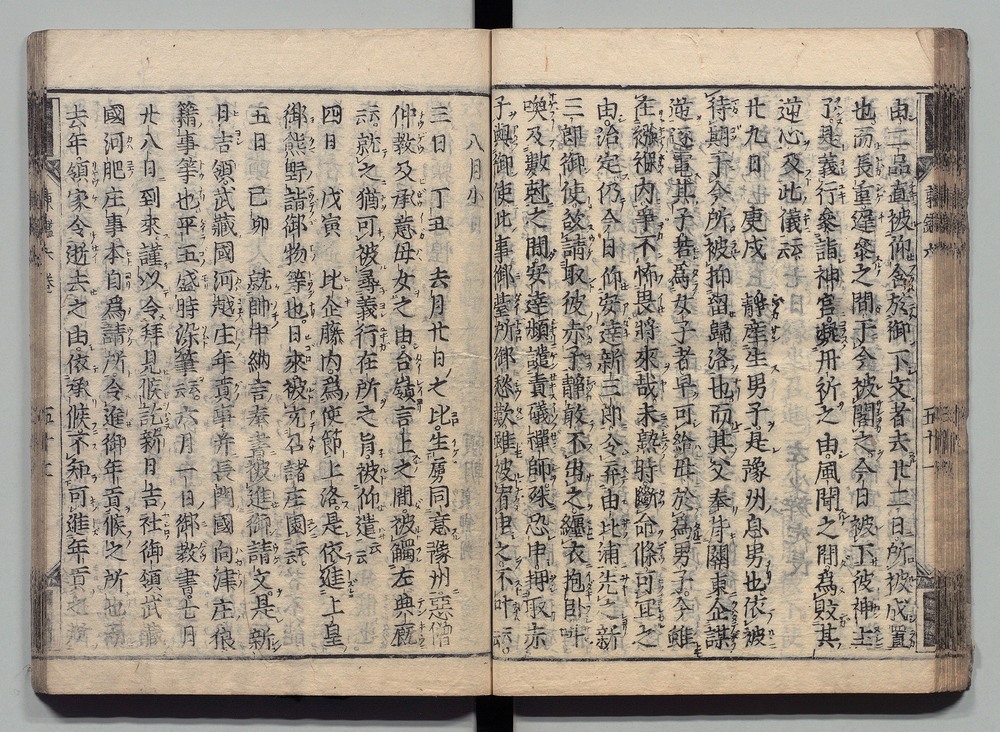 由二品直被仰含於御下文者去廿二日所被成置
也而長重遲參之間于今被閣之今日被下彼神主
了是義行參詣神宮凝丹祈之由風聞之間爲敗其
逆心及此儀云云
廿九日 庚戌 靜產生男子是豫州息男也依被
待期于今所被抑留歸洛也而其父奉背關東企謀
逆逐電其子若爲女子者早可給母於爲男子今雖
在襁褓内爭不怖畏將來哉未熟時斷命條可宜之
由治定仍今日仰安達新三郎令弃由比浦先之新
三郎御使欲請取彼赤子靜敢不出之纒衣抱臥叫
喚及數尅之間安達頻譴責礒禪師殊恐申押取赤
子與御使此事御臺所御愁歎雖被宥申之不叶云云
八月小
三日 丁丑 去月廿日之比生虜同意豫州惡僧
仲敎及承意母女之由台嶺言上之間被觸左典厩
云云就之猶可被尋義行在所之旨被仰遣云云
四日 戊寅 比企藤内爲使節上洛是依進上皇
御熊野詣御物等也日來被充召諸庄園云云
五日 己卯 就帥中納言奉書被進御請文是新
日吉領武藏國河越庄年貢事并長門國向津庄狼
籍事等也平五盛時染筆云云六月一日御敎書七月
廿八日到來謹以令拜見候訖新日吉社御領武藏
國河肥庄事本自爲請所令進御年貢候之所也而
去年領家令逝去之由依承候不知可進年貢之